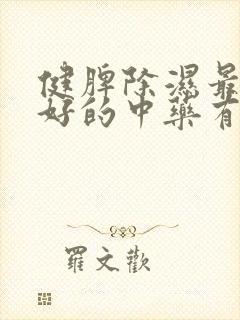 健脾除濕最
好的中藥有
羅文歡